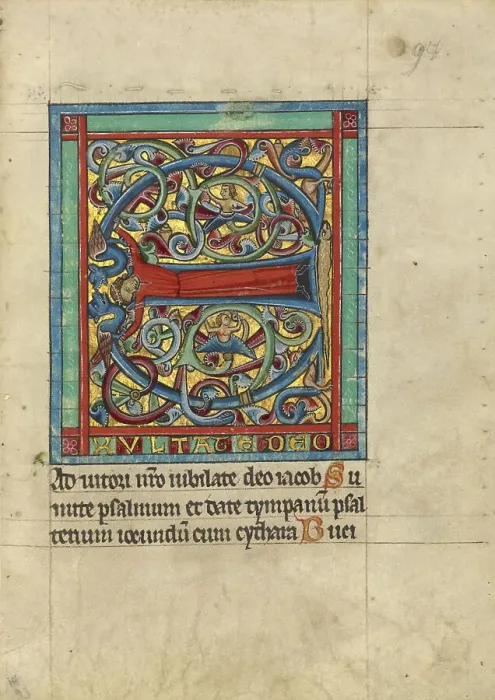 97.
E
XVLTATE DEO
Ad iutori nr̄o iubilate deo iacob Su
mite psalmum et date tympanū psal
terium iocundū cum cythara Buci